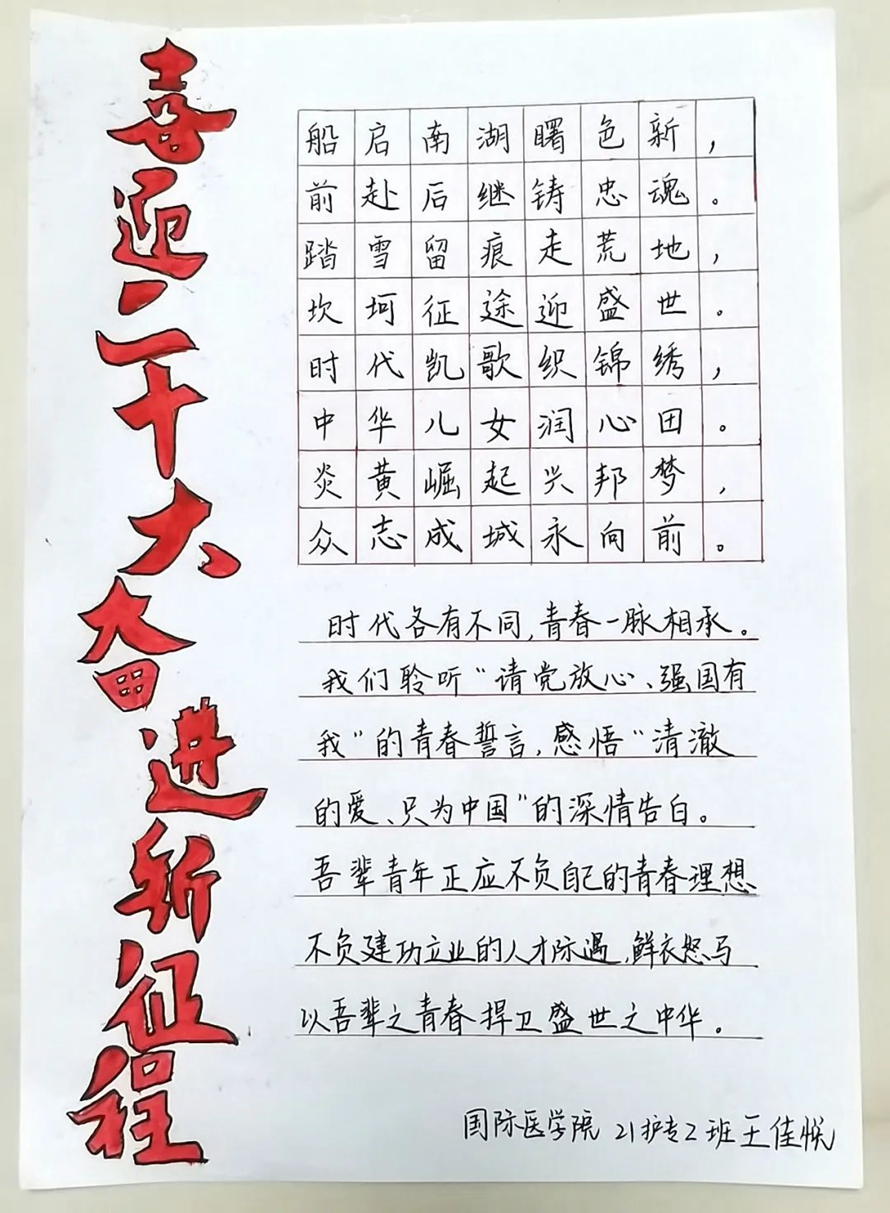 喜迎二十大奋进新征程
船启南湖曙色新，
前赴后继铸忠魂。
踏雪留痕走荒地，
坎坷征途迎盛世。
时代凯歌织锦绣，
中华儿女润心田。
炎黄崛起兴邦梦，
众志成城永向前。
时代各有不同,青春一脉相承。
我们聆听“请党放心、强国有
我”的青春誓言,感悟“清澈
的爱、只为中国”的深情告白。
吾辈青年正应不负自己的青春理想
不负建功立业的人才际遇,鲜衣怒马
以吾辈之青春捍卫盛世之中华。
国际医学院 21护专2班王佳悦